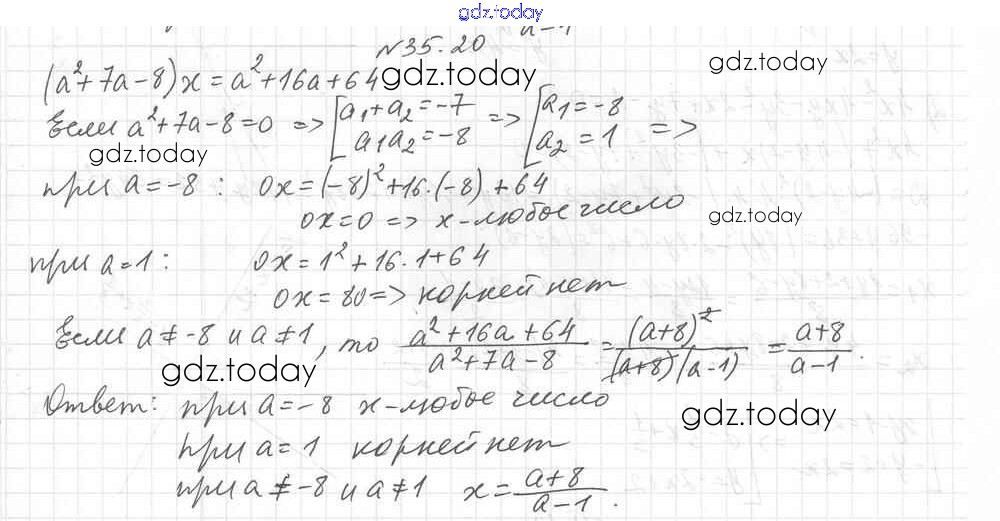 gdz.today
№35.20
(a²+7a-8)x=a²+16a+64
gdz.today
gdz.today
Если a²+7a-8=0 => [a₁+a₂=-7 a₁a₂=-8 => [a₁=-8 a₂=1 =>
gdz.today
при a=-8: 0x=(-8)²+16·(-8)+64
0x=0 => x-любое число
gdz.today
при a=1: 0x=1²+16·1+64
0x=80=> корней нет
Если a≠-8 и a≠1, то (a²+16a+64)/(a²+7a-8)=(a+8)²/((a+8)(a-1))=(a+8)/(a-1).
gdz.today
Ответ: при a=-8 x-любое число
gdz.today
при a=1 корней нет
при a≠-8 и a≠1 x=(a+8)/(a-1).